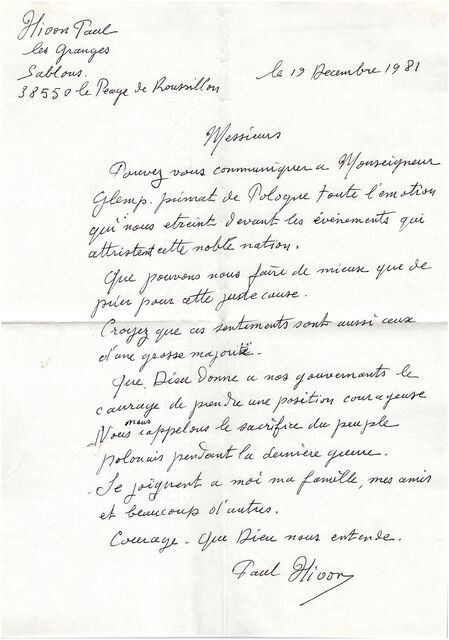 Hivon Paul
les Granges
Sablons.
38550 le Peage de Roussillon
le 19 Decembre 1981
Messieurs
Pouvez vous communiquer a Monseigneur
Glemp. primat de Pologne toute l'emotion
qui nous etreint devant les évènements qui
attristent cette noble nation.
Que pouvons nous faire de mieux que de
prier pour cette juste cause.
Croyez que ces sentiments sont aussi ceux
d'une grosse majorité.
Que Dieu donne a nos gouvernants le
courage de prendre une position courageuse
Nous nous rappelons le sacrifice du peuple
polonais pendant la dernière guerre.
Se joignent a moi ma famille, mes amis
et beaucoup d'autres.
Courage - Que Dieu nous entende.
Paul Hivon